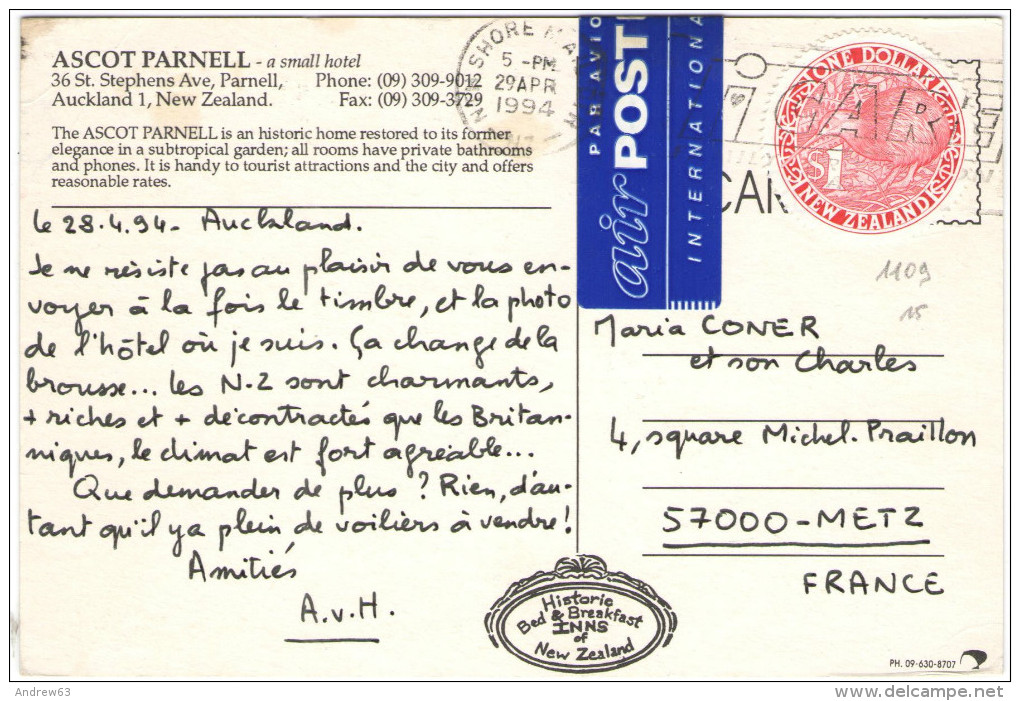 ASCOT PARNELL - a small hotel
36 St. Stephens Ave, Parnell, Phone: (09) 309-9012
Auckland 1, New Zealand. Fax: (09) 309-3729
The ASCOT PARNELL is an historic home restored to its former
elegance in a subtropical garden; all rooms have private bathrooms
and phones. It is handy to tourist attractions and the city and offers
reasonable rates.
le 28.4.94 - Auckland.
Je ne résiste pas au plaisir de vous en-
voyer à la fois le timbre, et la photo
de l'hôtel où je suis. Ça change de la
brousse... les N-Z sont charmants,
+ riches et + décontractés que les Britan-
niques, le climat est fort agréable...
Que demander de plus ? Rien, d'au-
tant qu'il y a plein de voiliers à vendre!
Amitiés
A.v.H.
SHORE MA
5 -PM
29APR
1994
PAR AVION
air POST
INTERNATIONA
ONE DOLLAR
$1
NEW ZEALAND
1109
15
Maria CONER
et son Charles
4, square Michel. Praillon
57000 - METZ
FRANCE
Historic
Bed & Breakfast
INNS
of
New Zealand
PH. 09-630-8707
Andrew63
www.delcampe.net